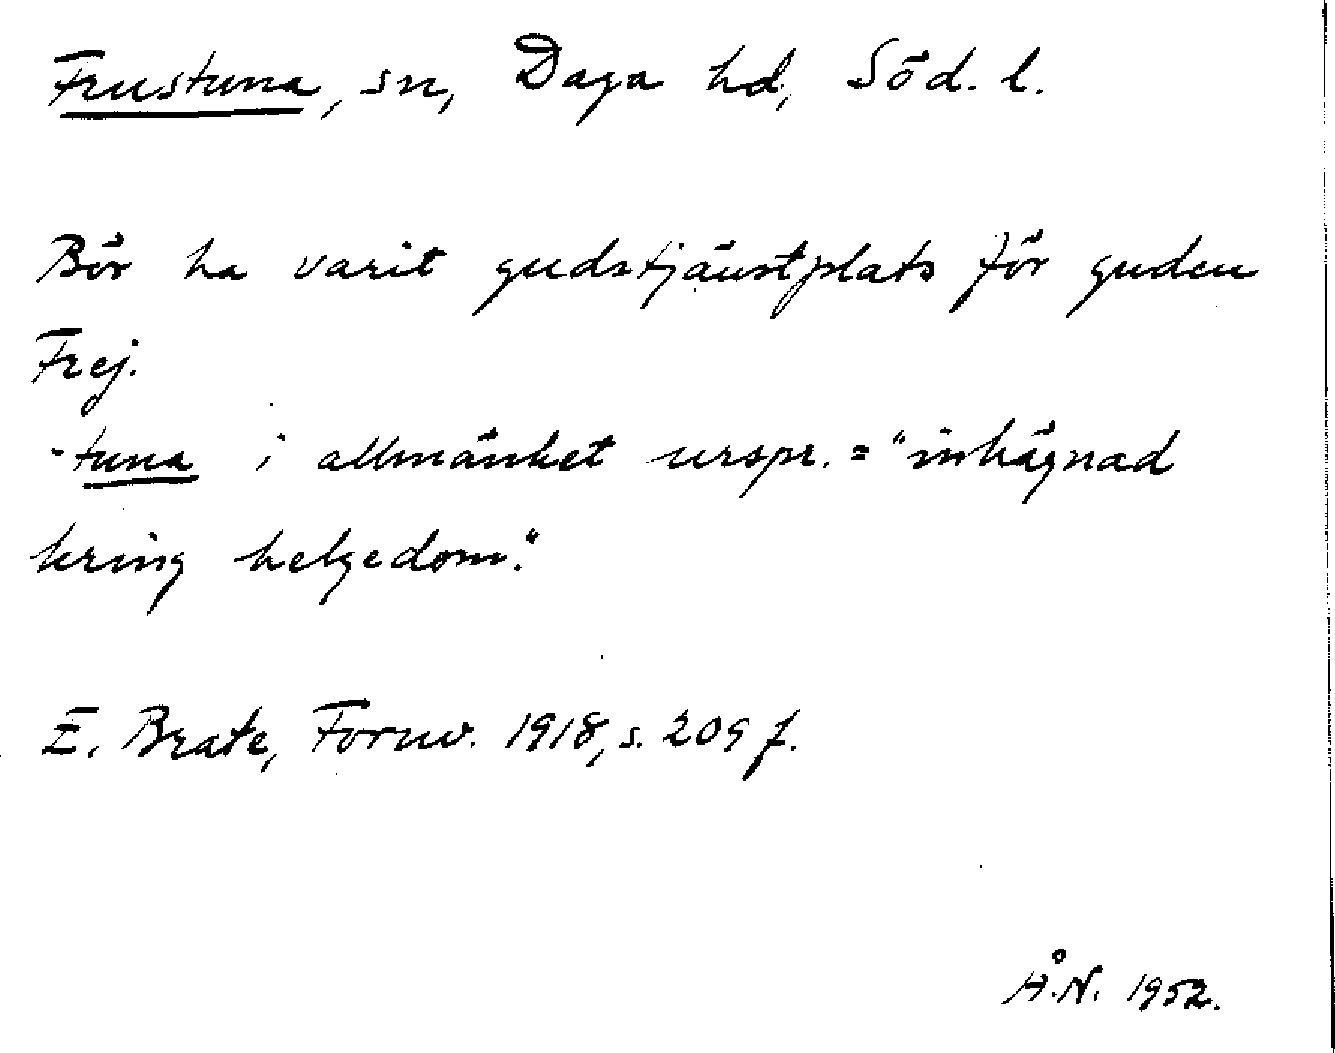 Frustuna, sn, Daga hd, Söd. l.
Bör ha varit gudstjänstplats för guden
Frej.
-tuna i allmänhet urspr. = "inhägnad
kring helgedom."
E. Brate, Fornv. 1918, s. 209 f.
Å.N. 1952.